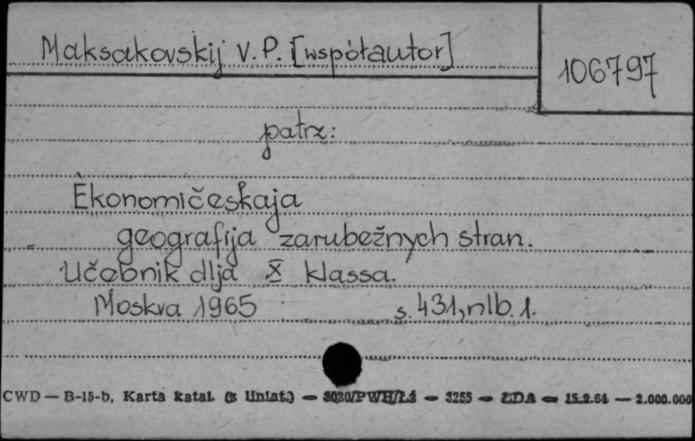 Maksakovskij V. P. [współautor]
106797
patrz:
Ėkonomičeskaja
geografija zarubežnych stran.
Učebnik dlja X klassa.
Moskva 1965 s. 431, nlb. 1.
CWD — B-15-b, Karta katal. (z liniat.) — 3020/PWH/Łś — 3255 — ŁDA — 15.2.64 — 2.000.000